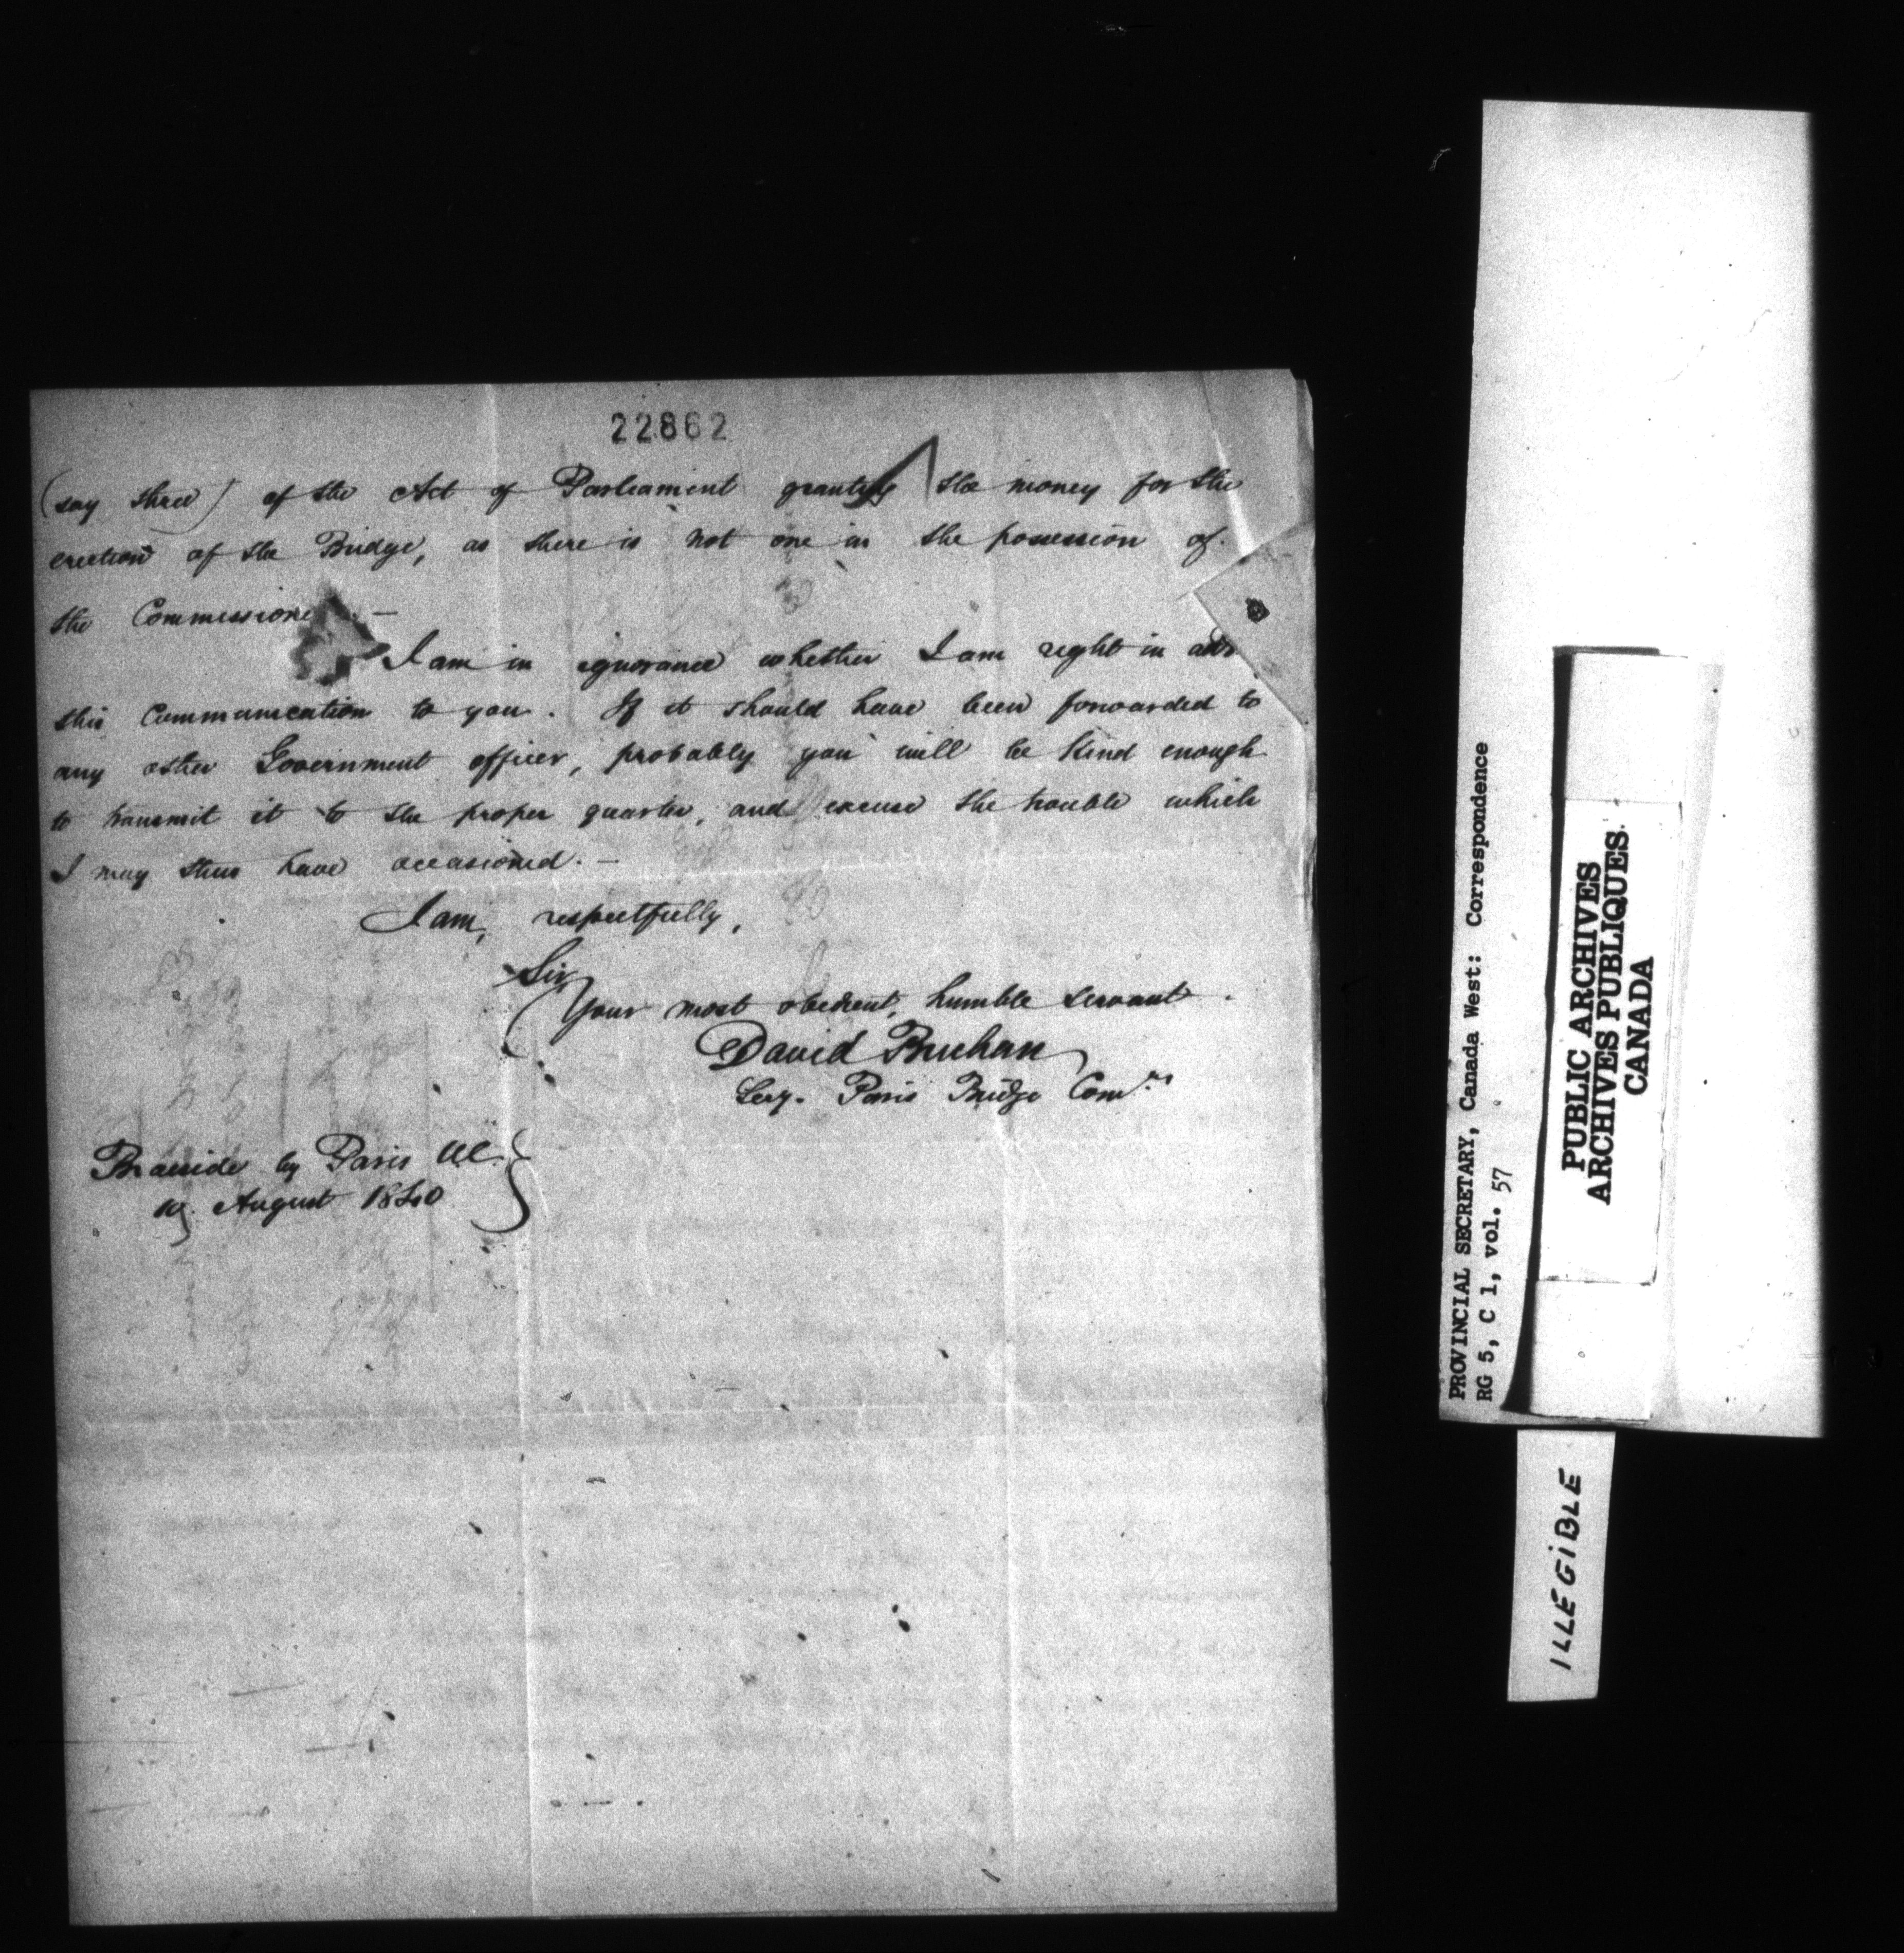 22862
(say three) of the Act of Parliament granting the money for the
erection of the Bridge, as there is not one in the possession of
the Commissioners. —
I am in ignorance whether I am right in
this communication to you. If it should have been forwarded to
any other Government officer, probably you will be kind enough
to transmit it to the proper quarter, and excuse the trouble which
I may thus have occasioned. —
I am, respectfully,
Sir,
Your most obedient, humble servant.
David Buchan
Secy. Paris Bridge Comrs
Braeside by Paris UC.
10 August 1840
PROVINCIAL SECRETARY, Canada West: Correspondence
RG 5, C 1, vol. 57
PUBLIC ARCHIVES
ARCHIVES PUBLIQUES
CANADA
ILLEGIBLE